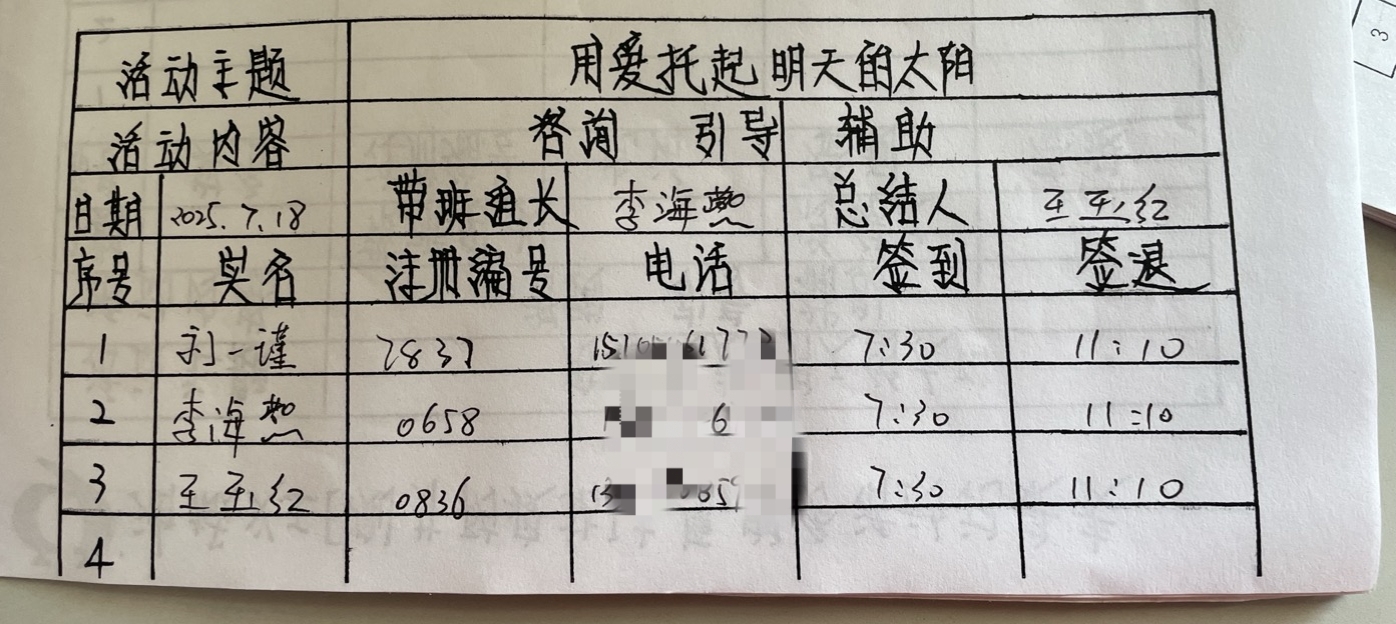 活动主题 用爱托起明天的太阳
活动内容 咨询 引导 辅助
日期 2025.7.18 带班组长 李海燕 总结人 王玉红
序号 实名 注册编号 电话 签到 签退
1 刘一谨 2837 7:30 11:10
2 李海燕 0658 7:30 11:10
3 王玉红 0836 7:30 11:10
4